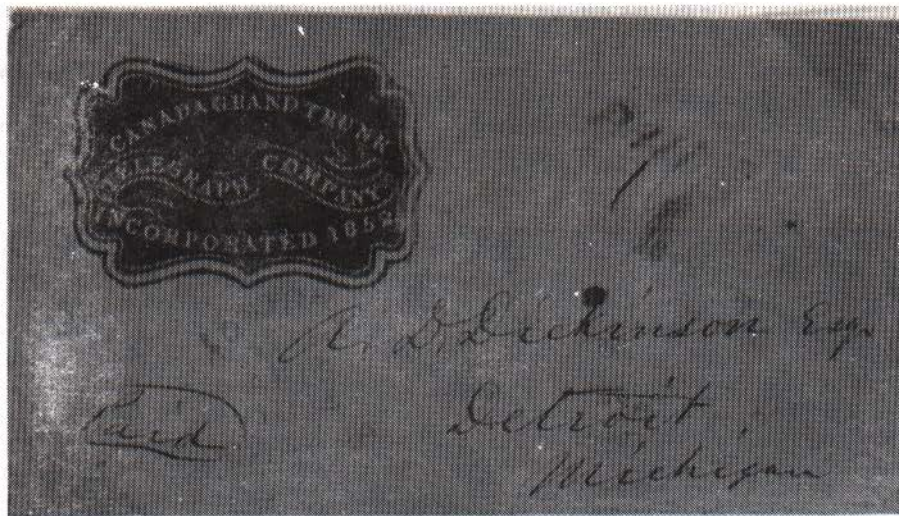 CANADA GRAND TRUNK
TELEGRAPH COMPANY
INCORPORATED 1852
A. D. Dickinson Esq.
Detroit,
Michigan
Paid